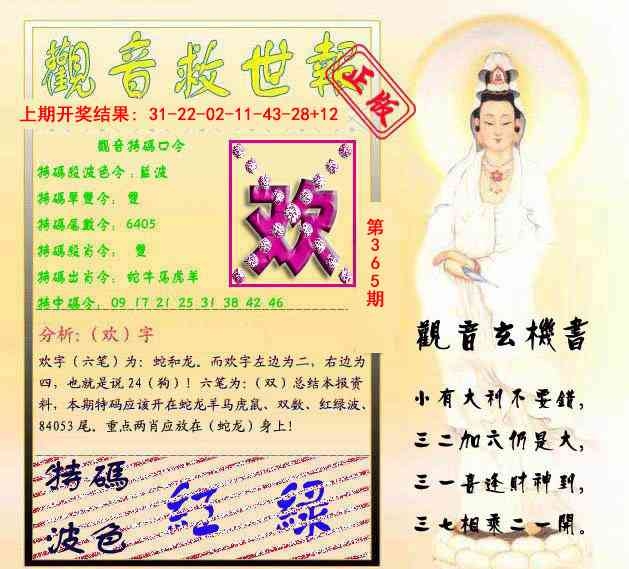 觀音救世報
正版
上期开奖结果: 31-22-02-11-43-28+12
觀音特碼口令
特碼段波色令:藍波
特碼單雙令: 雙
特碼尾數令: 6405
特碼段肖令: 雙
特碼出肖令: 蛇牛马虎羊
特中碼令: 09 17 21 25 31 38 42 46
欢
第365期
分析:(欢)字
欢字(六笔)为:蛇和龙。而欢字左边为二,右边为
四,也就是说24(狗)!六笔为:(双)总结本报资
料,本期特码应该开在蛇龙羊马虎鼠、双数、红绿波、
84053尾。重点两肖应放在(蛇龙)身上!
特碼
波色
紅 綠
觀音玄機書
小有大利不要錯,
三二加六仍是大,
三一喜逢財神到,
三七相乘二一開。